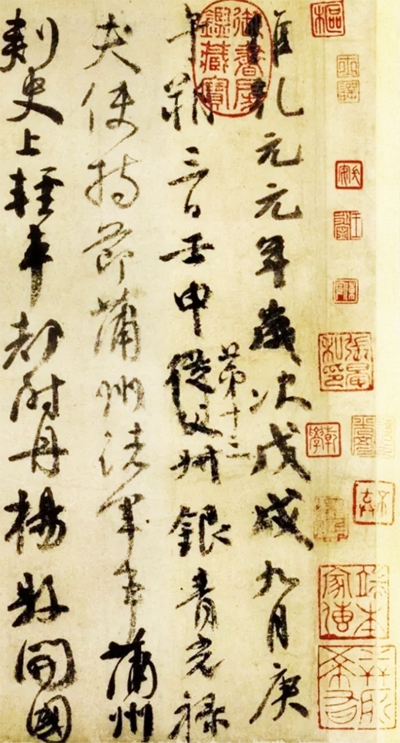 維乾元元年歲次戊戌九月庚
第十三
午朔三日壬申從父叔銀青光祿
夫使持節蒲州諸軍事蒲州
刺史上輕車都尉丹楊縣開國
御書房鑑藏寶
樞